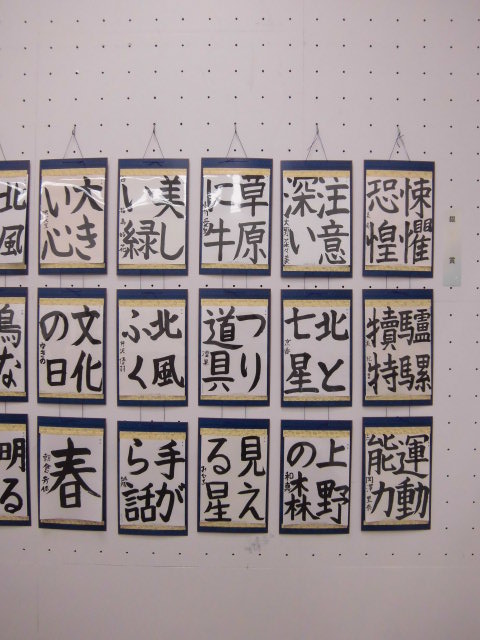 銀賞
悚懼
恐惶
注意
深い
草原
に牛
美し
い緑
大き
い心
北風
驢騾
犢特
北と
七星
つり
道具
北風
ふく
文化
の日
鳥な
運動
能力
上野
の森
見え
る星
手が
ら話
春
明る